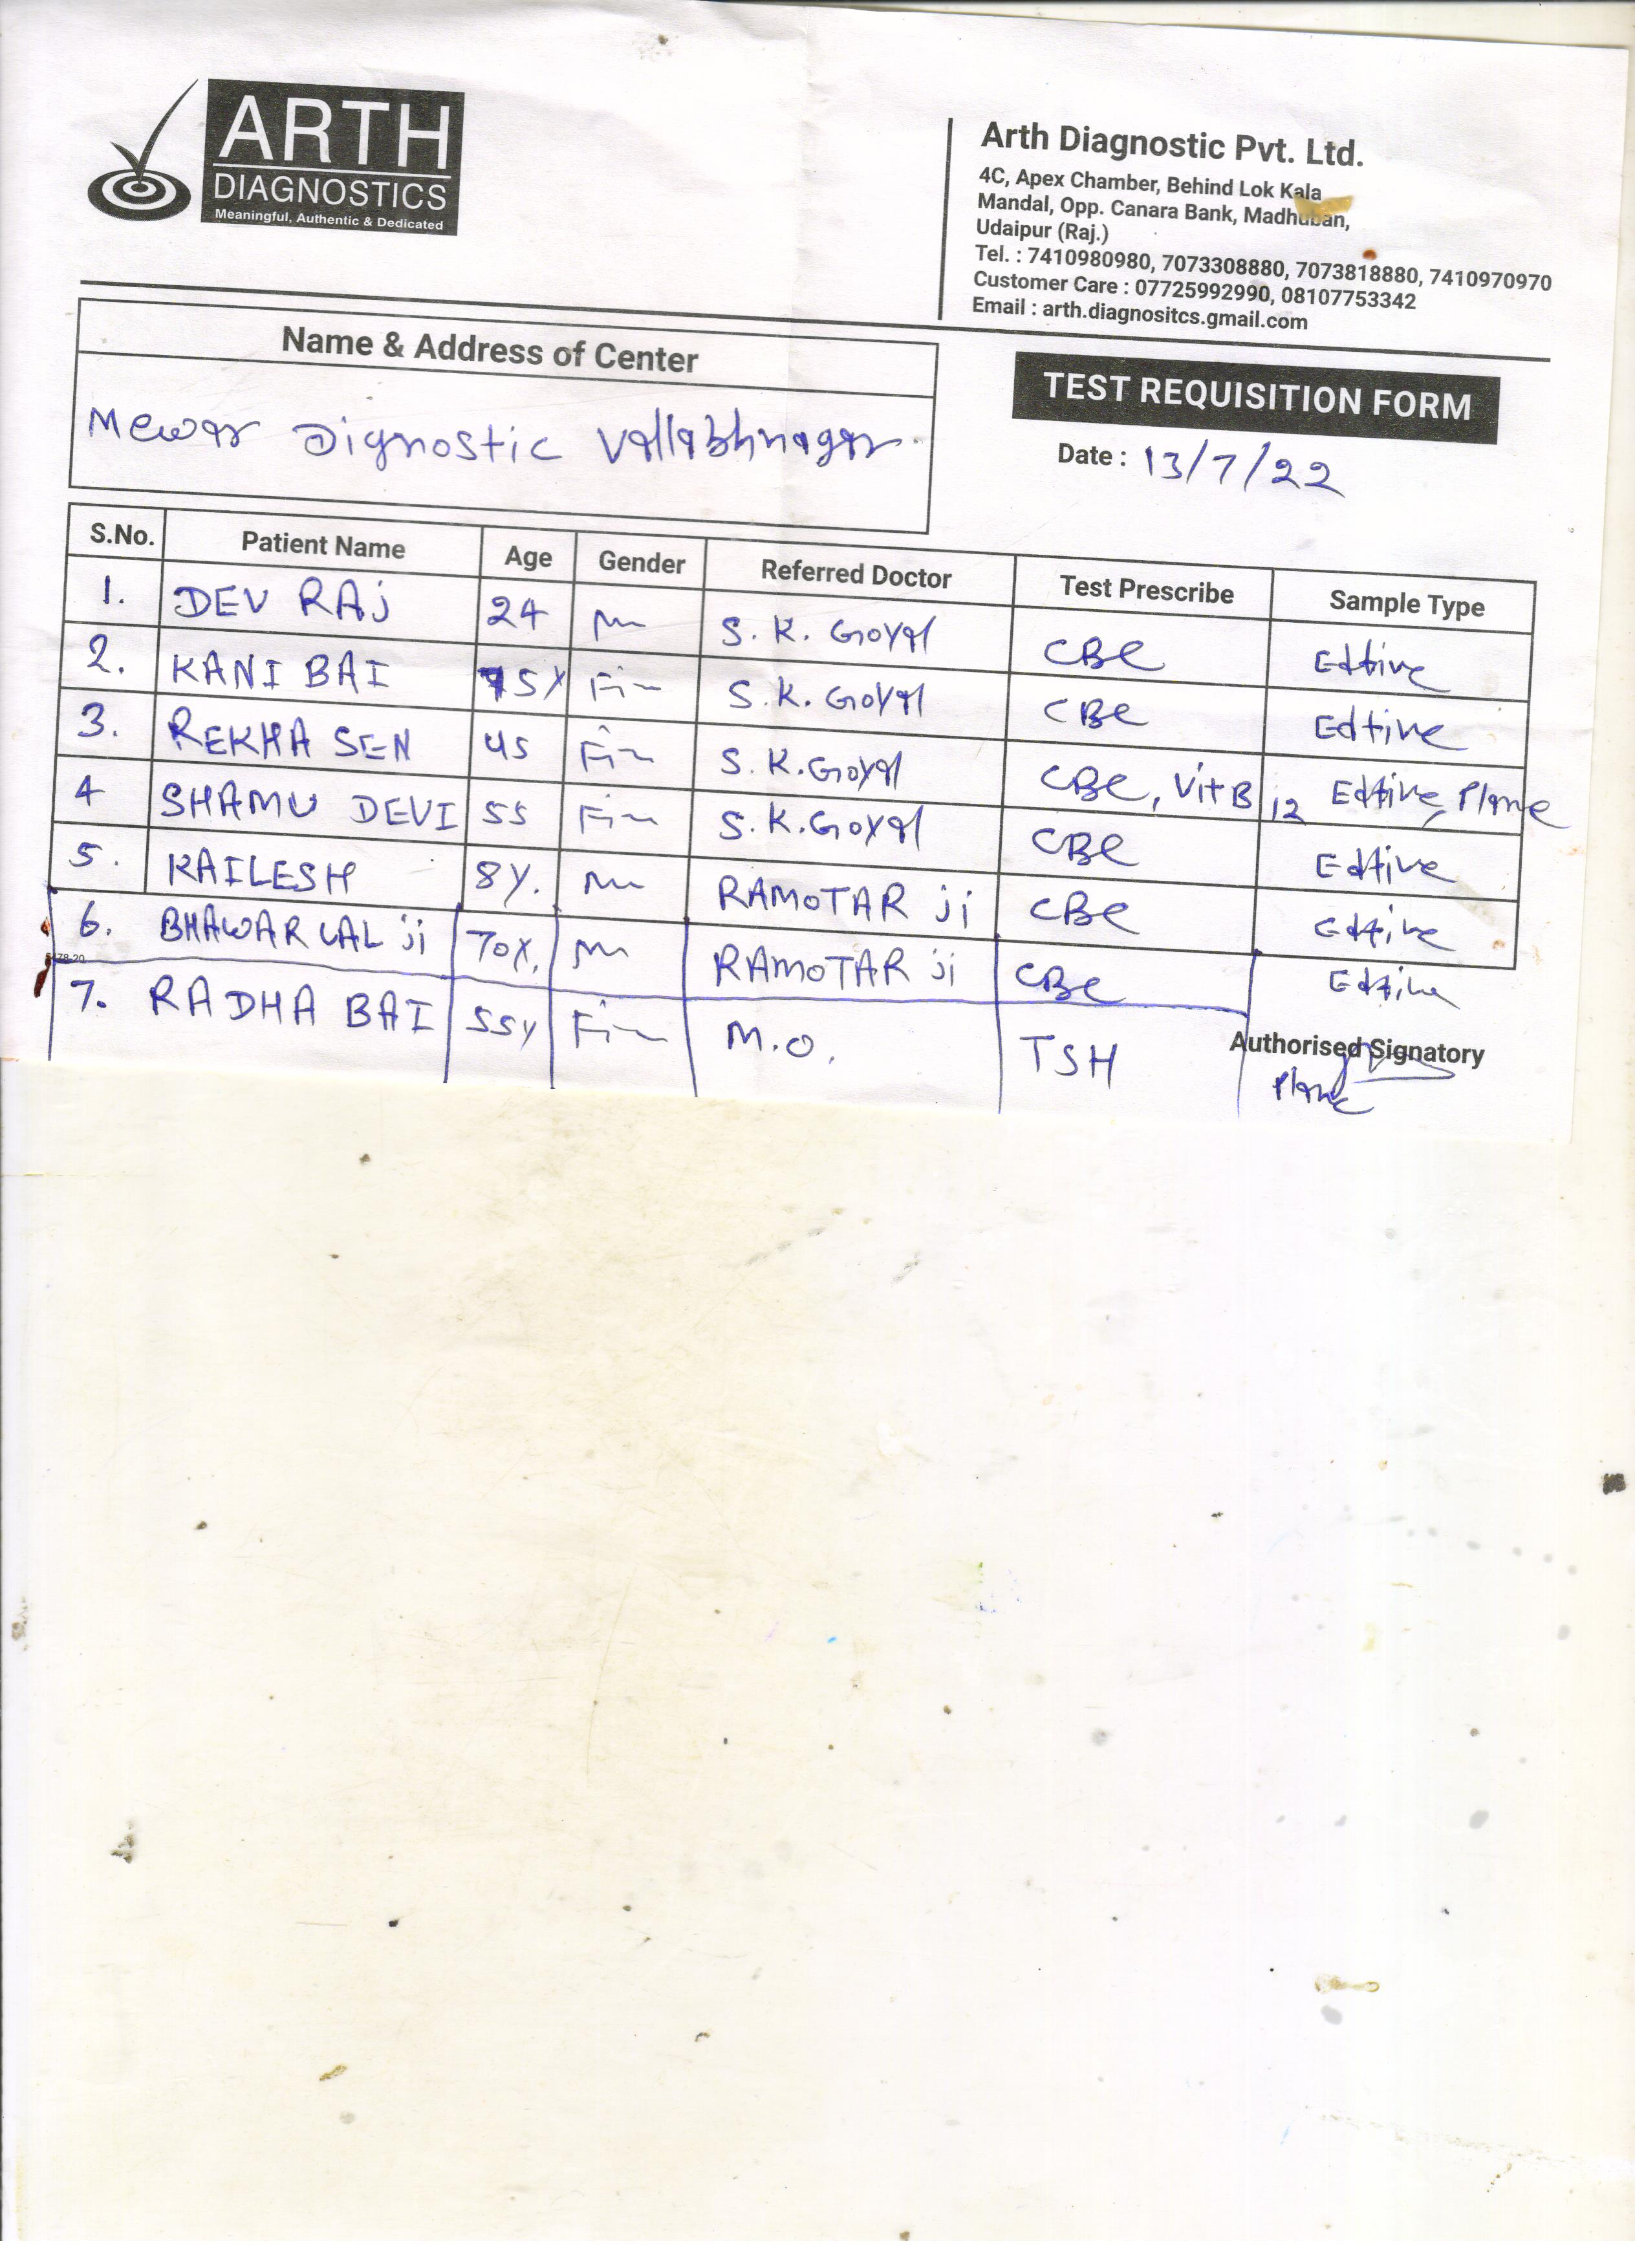 ARTH
DIAGNOSTICS
Meaningful, Authentic & Dedicated
Arth Diagnostic Pvt. Ltd.
4C, Apex Chamber, Behind Lok Kala
Mandal, Opp. Canara Bank, Madhuban,
Udaipur (Raj.)
Tel. : 7410980980, 7073308880, 7073818880, 7410970970
Customer Care : 07725992990, 08107753342
Email : arth.diagnositcs.gmail.com
Name & Address of Center
Mewar Dignostic Vallabhnagar
TEST REQUISITION FORM
Date : 13/7/22
S.No. Patient Name Age Gender Referred Doctor Test Prescribe Sample Type
1. DEV RAj 24 m S. K. Goyal CBC Edtive
2. KANI BAI 75Y Fim S.K. Goyal CBC Edtive
3. REKHA SEN 45 Fim S.K. Goyal CBC, Vit B 12 Edtive, Plane
4 SHAMU DEVI 55 Fim S.K. Goyal CBC Edtive
5. KAILESH 8Y. m RAMOTAR ji CBC Edtive
6. BHAWAR LAL ji 70Y. m RAMOTAR ji CBC Edtive
5478-20
7. RADHA BAI 55y Fim M.O. TSH Plane
Authorised Signatory